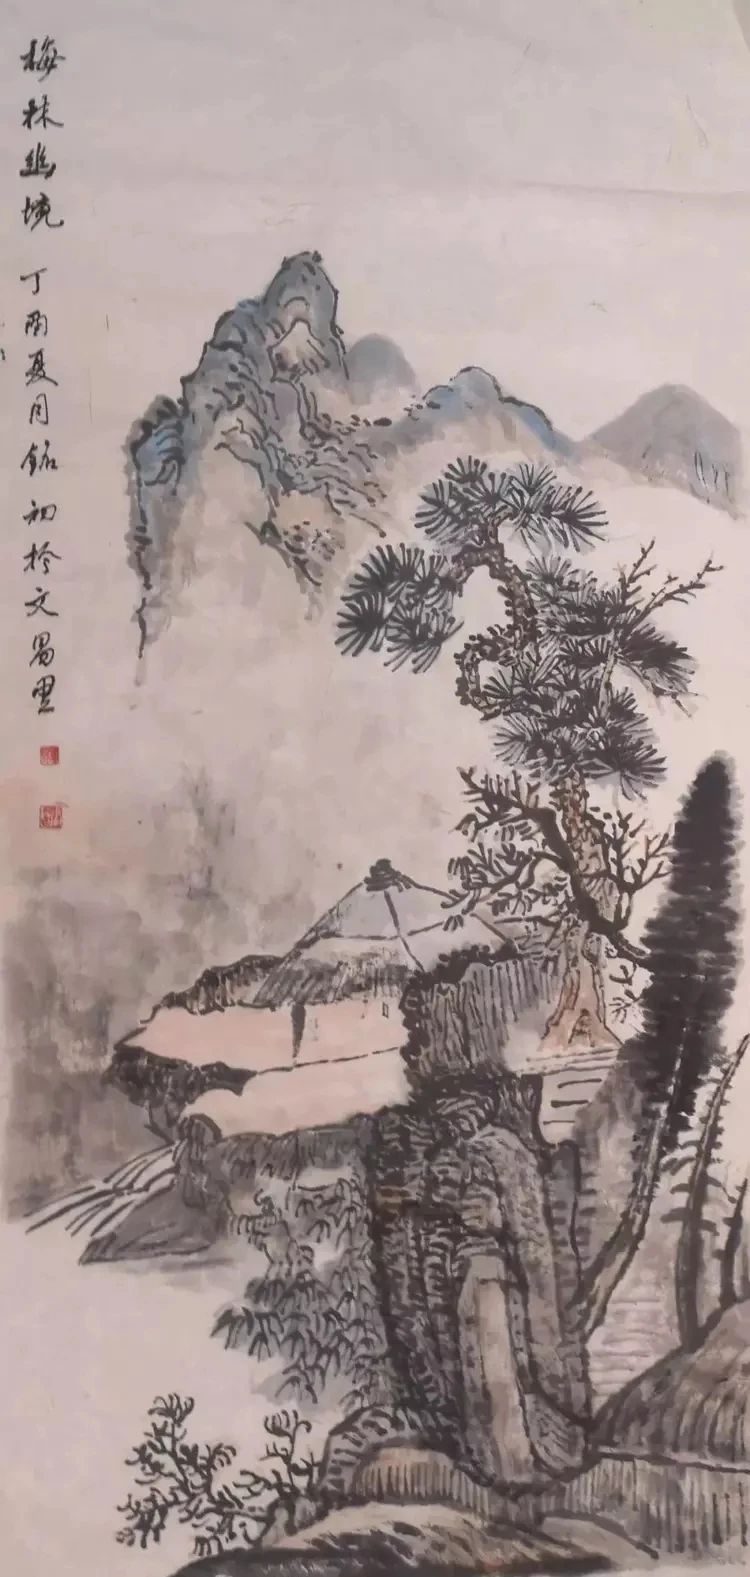 梅林幽境 丁酉夏月銘初於文昌里